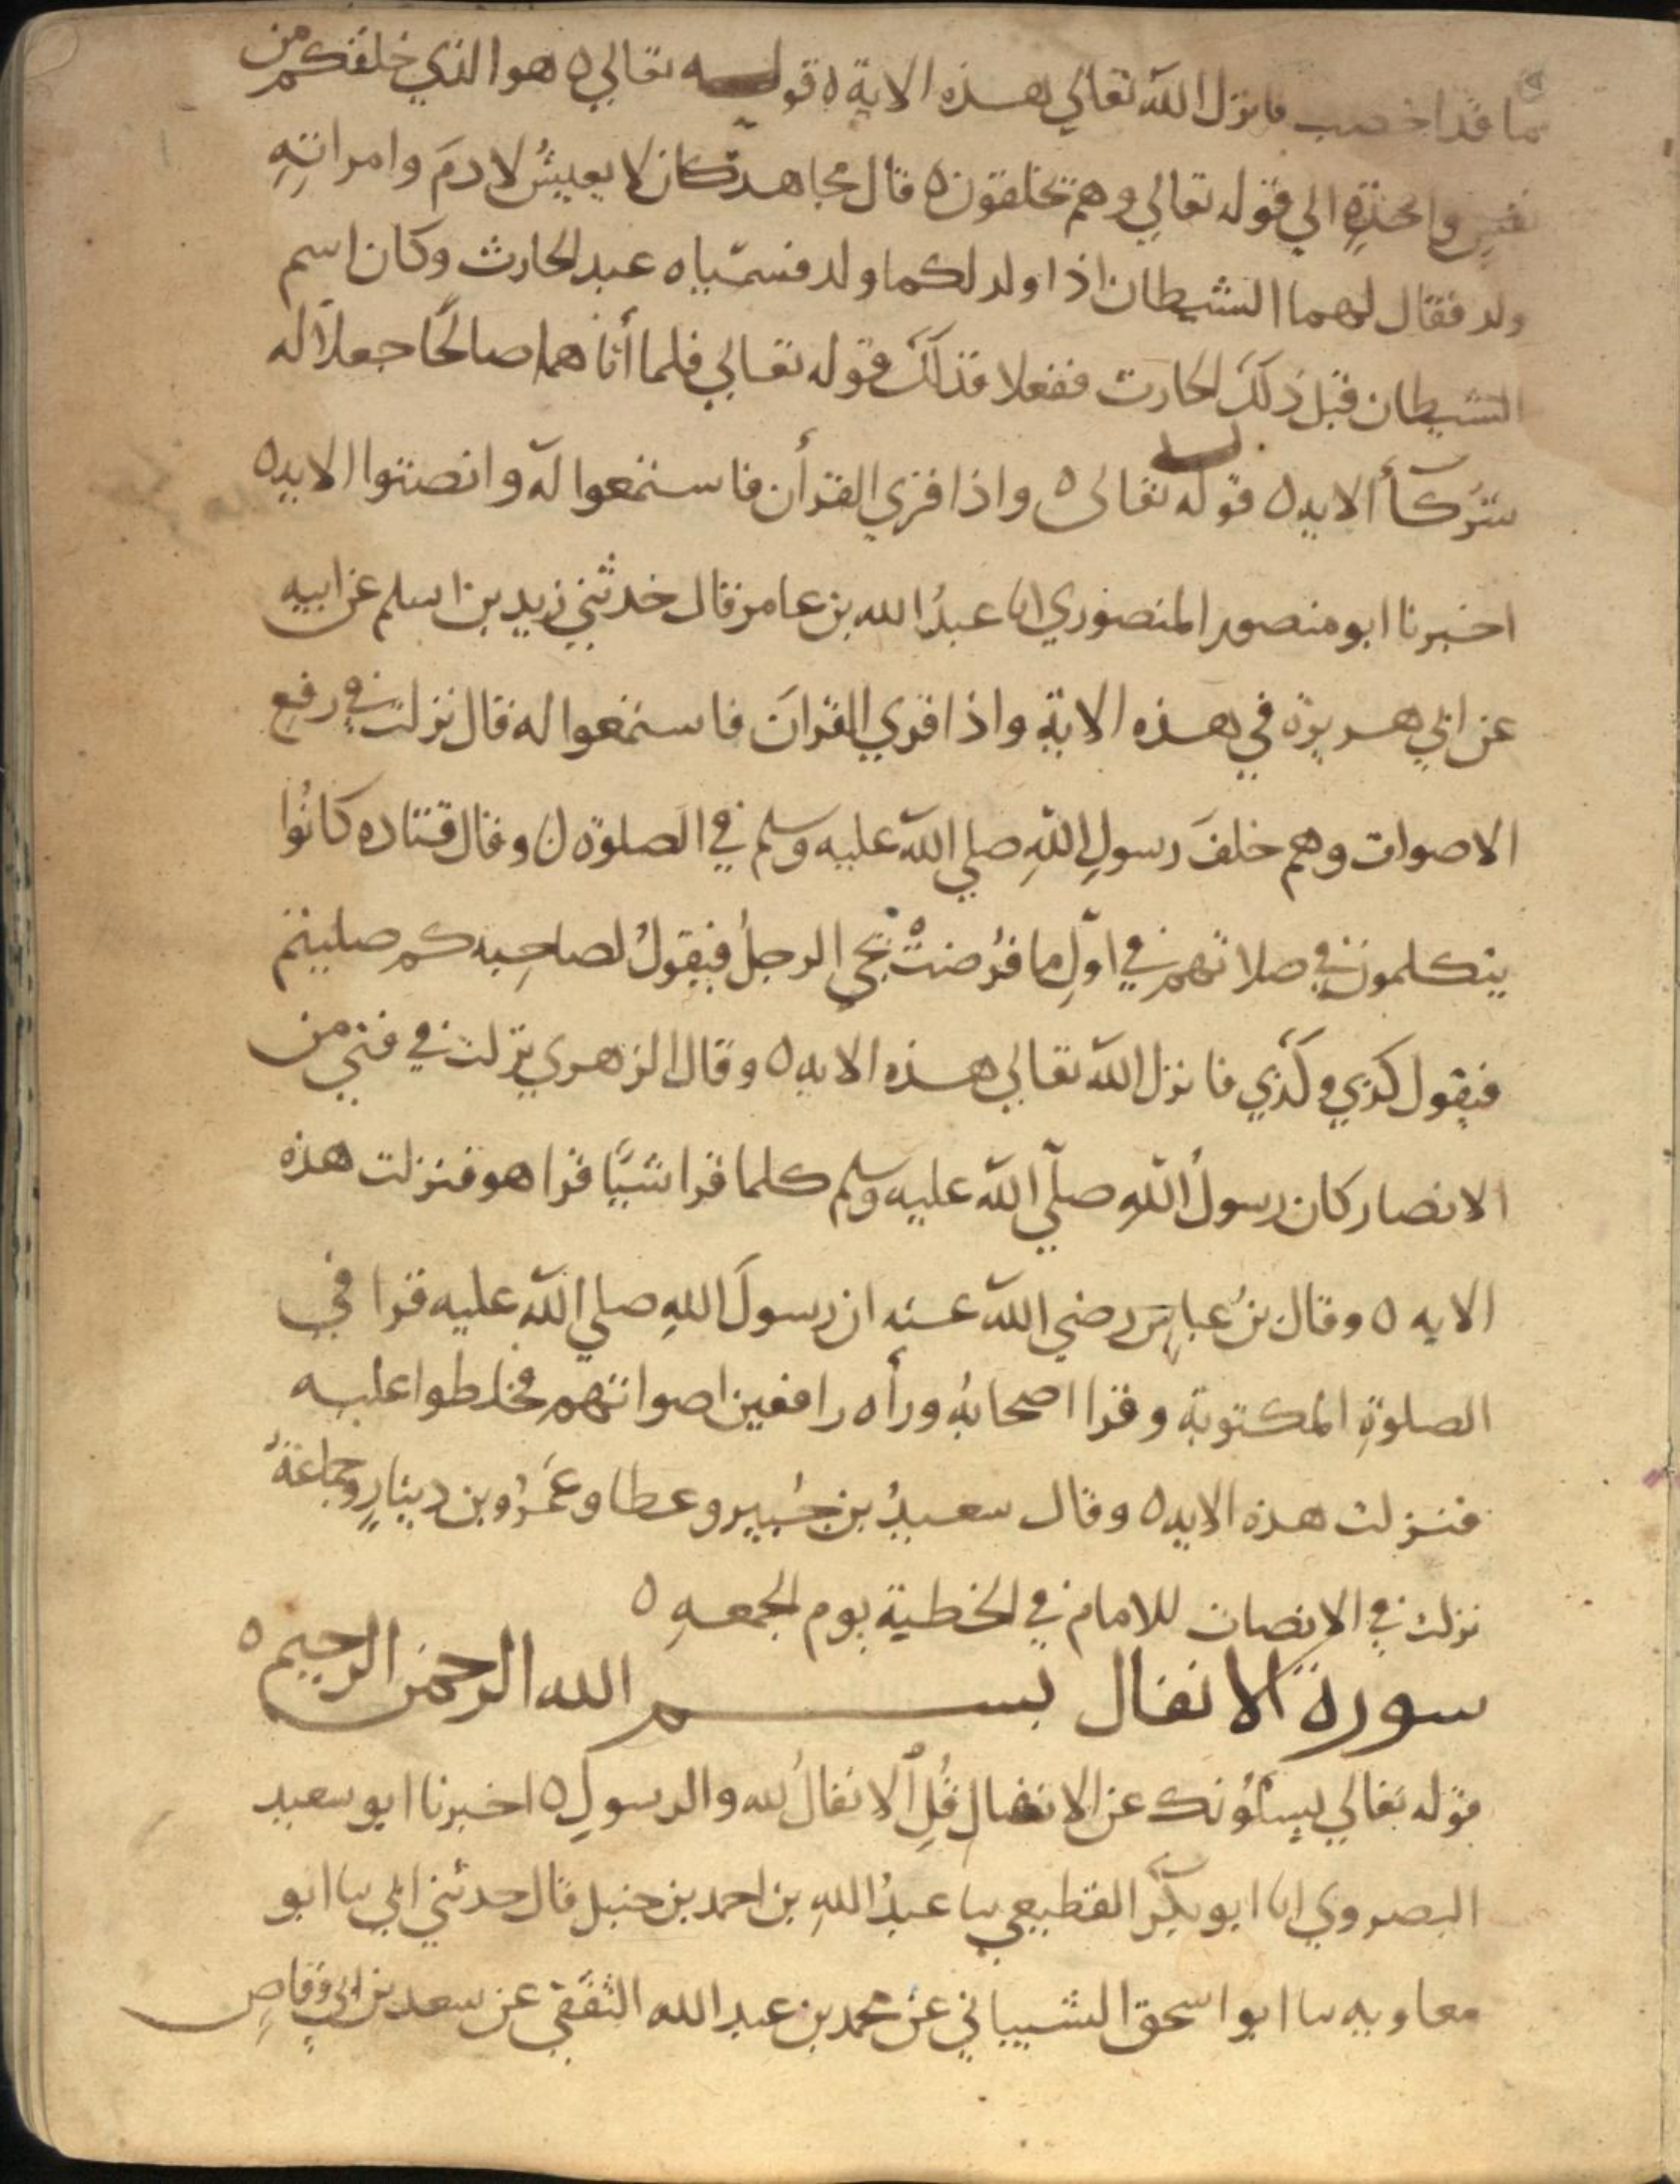 ما قد اخصب فانزل الله تعالي هذه الاية ه قوله تعالي ه هو الذي خلقكم من
نفسٍ واحدةٍ الي قوله تعالي وهم يخلقون ه قال مجاهد كان لا يعيشُ لادمَ وامراتِهِ
ولد فقال لهما الشيطان اذا ولد لكما ولد فسمّياه عبد الحارث وكان اسم
الشيطان قبل ذلك الحارث ففعلا فذلك قوله تعالي فلما أتاهما صالحًا جعلا له
شركآأ الايه ه قوله تعالى ه واذا قري القرأن فاستمعوا له وانصتوا الايه ه
اخبرنا ابو منصور المنصوري انا عبدُ الله بن عامر قال حدثني زيد بن اسلم عن ابيه
عن ابي هريرة في هذه الاية واذا قري القرانَ فاستمعوا له قال نزلت في رفع
الاصوات وهم خلفَ رسولِ اللهِ صلي الله عليه وسلم في الصلوة ه وقال قتاده كانُوا
يتكلمون في صلاتهم في اوّلِ ما فُرضتْ يجي الرجلُ فيقولُ لصاحِبِه كم صليتم
فيقول كذي وكذي فانزل الله تعالي هذه الايه ه وقال الزهري نزلت في فتي من
الانصار كان رسولُ اللهِ صلّي الله عليه وسلم كلما قرا شيًا قرا هو فنزلت هذه
الايه ه وقال بنُ عباس رضي الله عنه ان رسولَ اللهِ صلي الله عليه قرا في
الصلوةِ المكتوبة وقرا اصحابُه ورأه رافعين اصواتهم فخلطوا عليه
فنزلت هذه الايه ه وقال سعيدُ بن جُبير وعطا وعَمرُو بن دينارٍ وجماعةٌ
نزلت في الانصات للامام في الخطبة يوم الجمعهِ ه
سورة الانفال بسم الله الرحمن الرحيم ه
قوله تعالي يسئلُونك عن الانفال قُلِ الانفالُ لله والرسولِ ه اخبرنا ابو سعيد
البصروي انا ابو بكر القطيعي نا عبدُ اللهِ بن احمد بن حنبل قال حدثني ابي نا ابو
معاويه نا ابو اسحق الشيباني عن محمد بن عبد الله الثقفي عن سعد بن ابي وقاصِ